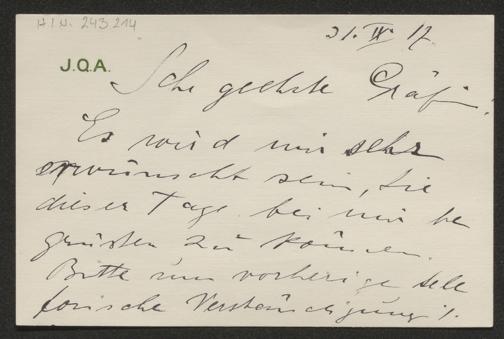 H.I.N. 243.214
31. IV 17.
J.Q.A.
Sehr geehrte Gräfin!
Es wird mir sehr
erwünscht sein, Sie
dieser Tage bei mir be
grüßen zu können.
Bitte um vorherige tele
fonische Verständigung!.